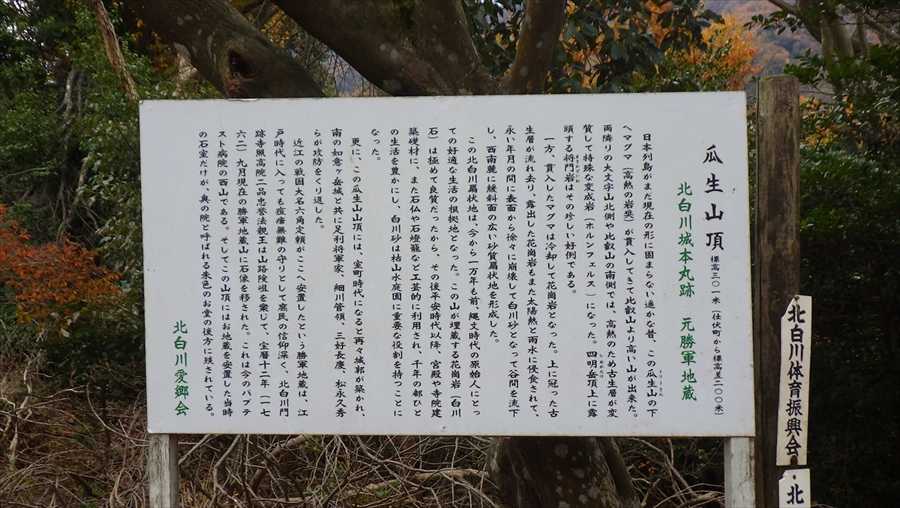 瓜生山頂 標高三〇一米(仕伏町から標高差二〇〇米)
北白川城本丸跡 元勝軍地蔵
日本列島がまだ現在の形に固まらない遙かな昔、この瓜生山の下
へマグマ(高熱の岩奬)が貫入してきて比叡山より高い山が出来た。
両隣りの大文字山北側や比叡山の南側では、高熱のため古生層が変
質して特殊な変成岩(ホルンフェルス)になった。四明岳頂上に露
頭する将門岩はその珍しい好例である。
一方、貫入したマグマは冷却して花崗岩となった。上に冠った古
生層が流れ去り、露出した花崗岩もまた太陽熱と雨水に侵食されて、
永い年月の間に表面から徐々に崩壊して白川砂となって谷間を流下
し、西南麓に緩斜面の広い砂質扇状地を形成した。
この北白川扇状地は、今から一万年も前、縄文時代の原始人にとっ
ての好適な生活の根拠地となった。この山が埋蔵する花崗岩(白川
石)は極めて良質だったから、その後平安時代以降、宮殿や寺院建
築礎材に、また石仏や石燈籠など工芸的に利用され、千年の都びと
の生活を豊かにし、白川砂は枯山水庭園に重要な役割を持つことに
なった。
更に、この瓜生山山頂には、室町時代になると再々城郭が築かれ、
南の如意ヶ岳城と共に足利将軍家、細川管領、三好長慶、松永久秀
らが攻防をくり返した。
近江の戦国大名六角定頼がここへ安置したという勝軍地蔵は、江
戸時代に入っても疫病無難の守りとして庶民の信仰深く、北白川門
跡寺照高院二品忠誉法親王は山路険阻を案じて、宝暦十二年(一七
六二)九月現在の勝軍地蔵山に石像を移された。これは今のバプテ
スト病院の西山である。そしてこの山頂にはお地蔵を安置した当時
の石室だけが、奥の院と呼ばれる朱色のお堂の後方に残されている。
北白川愛郷会
北白川体育振興会
北